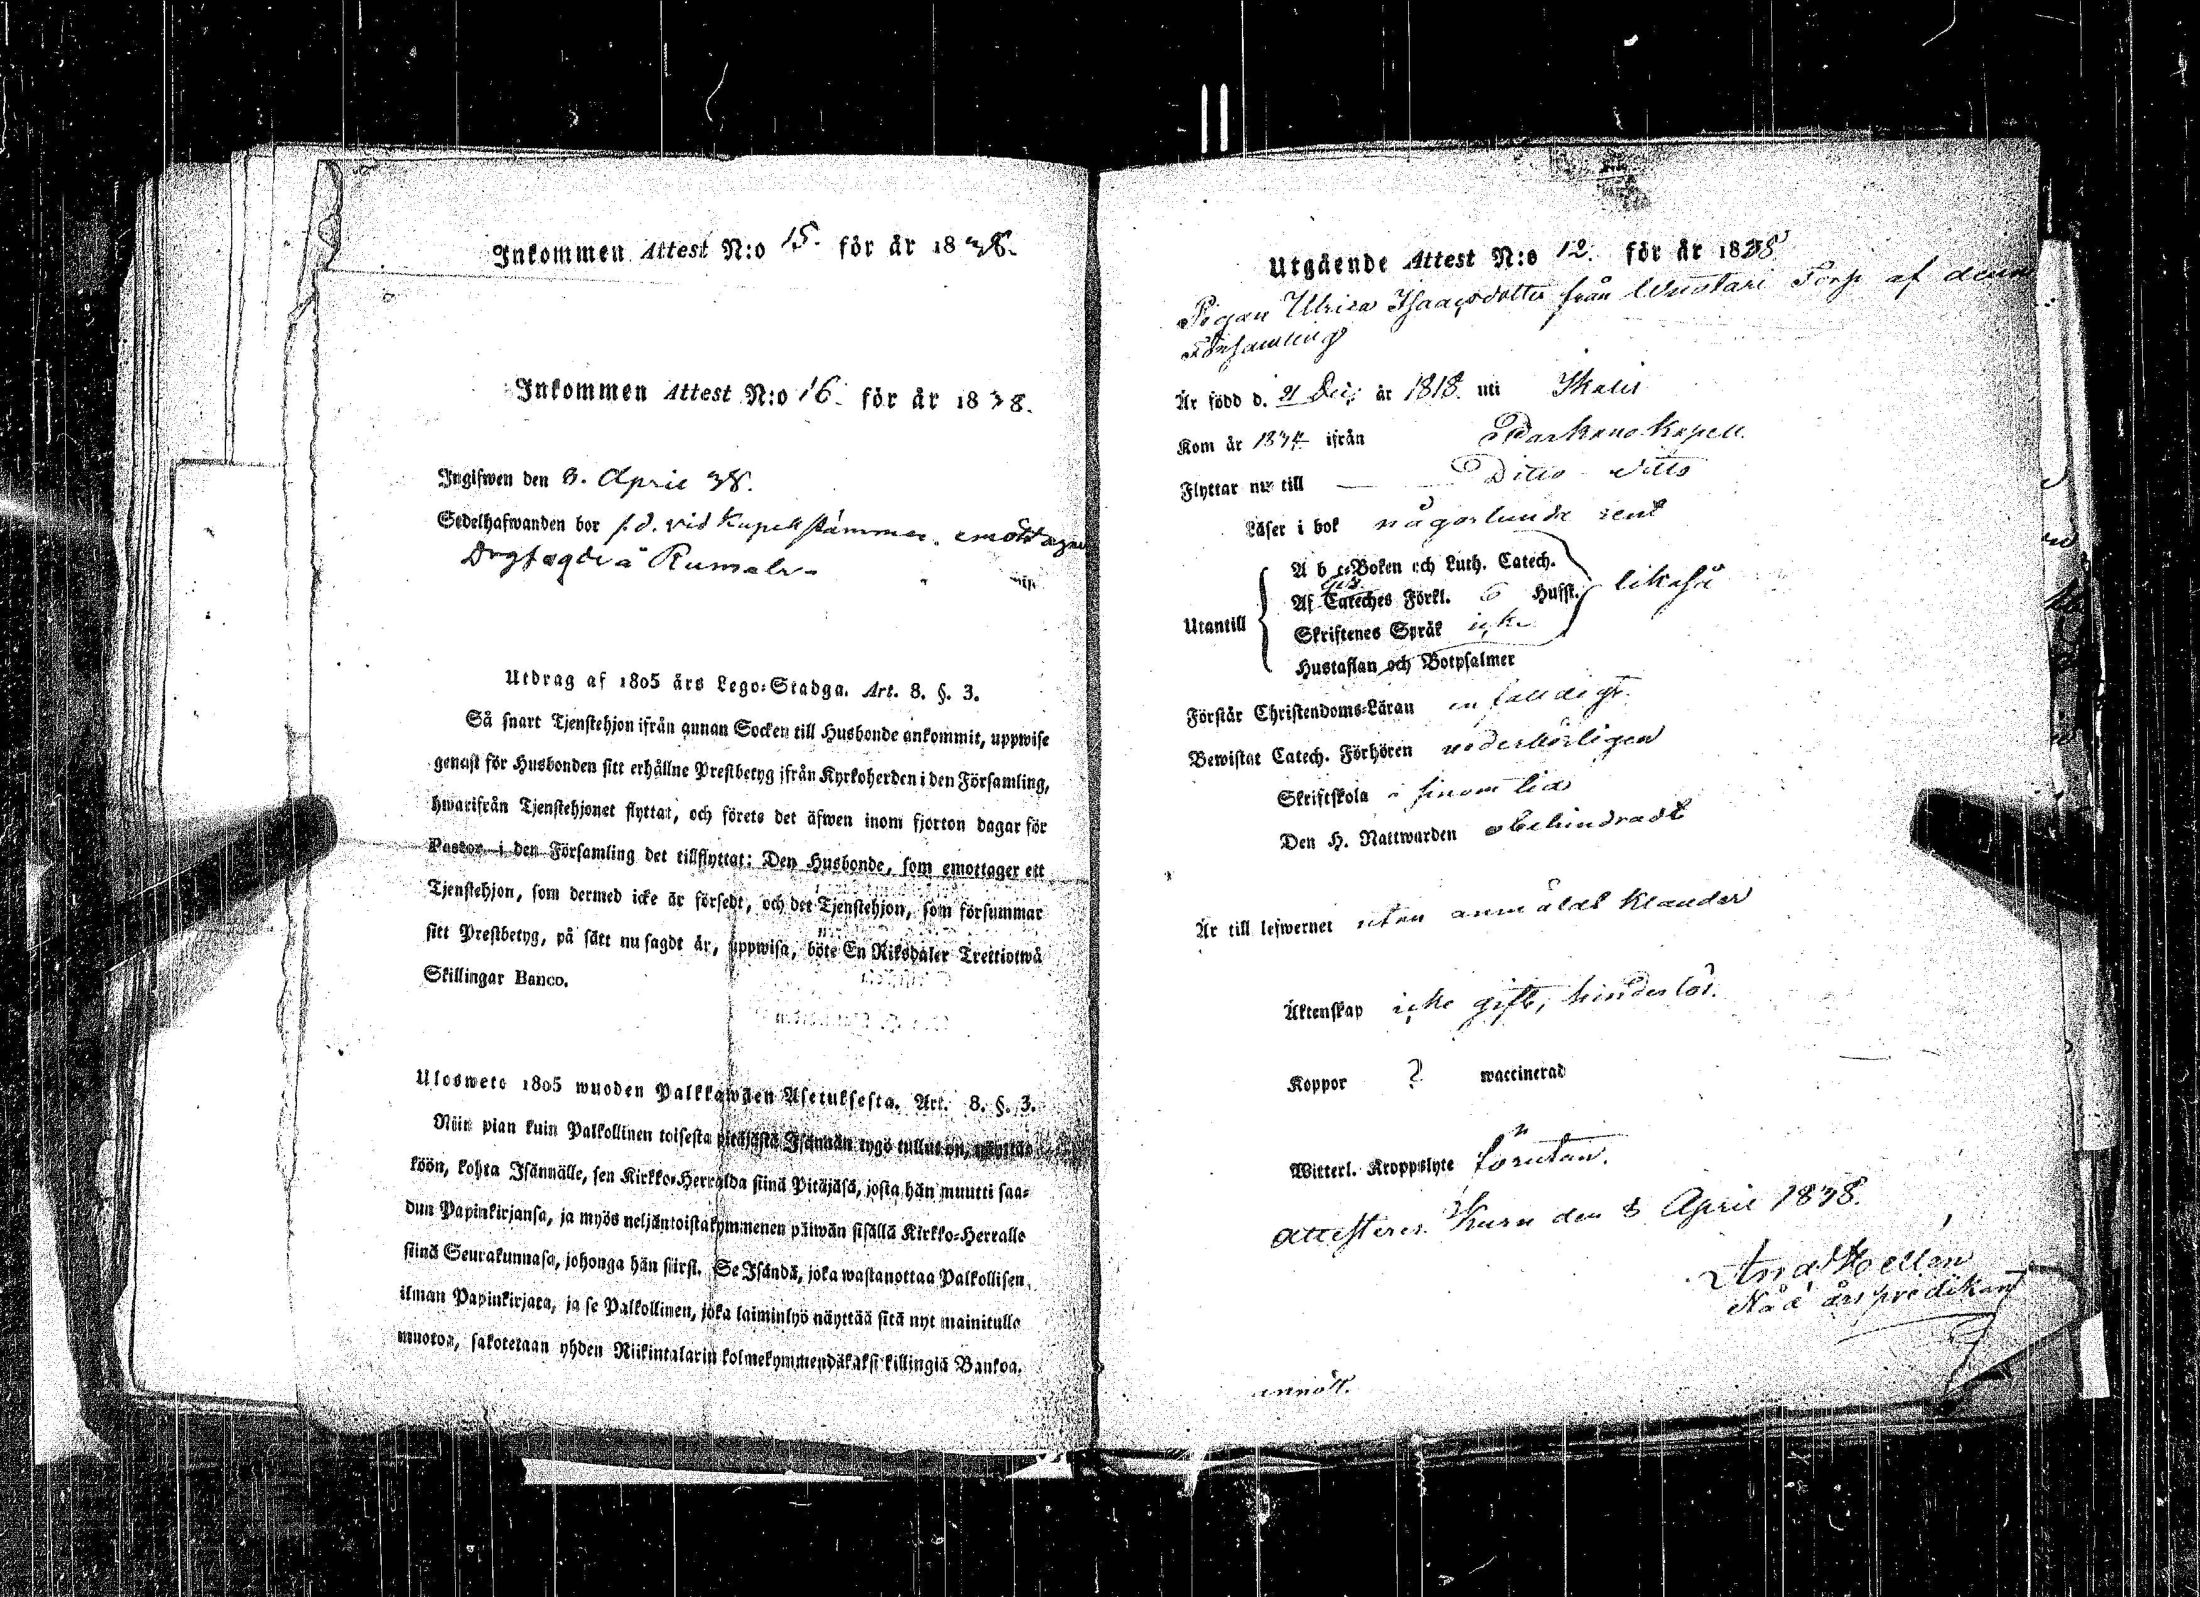 Inkommen Attest N:o 15. för år 1838.
Inkommen Attest N:o 16. för år 1838.
Ingifwen den 8. April 38.
Sedelhafwanden bor f.d. vid Kapell
Utdrag af 1805 års Lego-Stadga. Art. 8. §. 3.
Så snart Tjenstehjon ifrån annan Socken till Husbonde ankommit, uppwise
genast för Husbonden sitt erhållne Prestbetyg ifrån Kyrkoherden i den Församling,
hwarifrån Tjenstehjonet flyttat, och förete det äfwen inom fjorton dagar för
Pastor i den Församling det tillflyttat: Den Husbonde, som emottager ett
Tjenstehjon, som dermed icke är försedt, och det Tjenstehjon, som försummar
sitt Prestbetyg, på sätt nu sagdt är, uppwisa, böte En Riksdaler Trettiotwå
Skillingar Banco.
Ulosweto 1805 wuoden Palkkawäen Asetuksesta. Art. 8. §. 3.
Niin pian kuin Palkollinen toisesta pitäjästä Isännän tygö tullut on, näyttä-
köön, kohta Isännälle, sen Kirkko-Herralda siinä Pitäjäsä, josta hän muutti saa-
dun Papinkirjansa, ja myös neljäntoistakymmenen päiwän sisällä Kirkko-Herralle
siinä Seurakunnasa, johonga hän siirsi. Se Isändä, joka wastanottaa Palkollisen
ilman Papinkirjata, ja se Palkollinen, joka laiminlyö näyttää sitä nyt mainitulla
muotoa, sakotetaan yhden Riikintalarin kolmekymmendäkaksi killingiä Bankoa.
Utgående Attest N:o 12. för år 1838
Pigan Ulrica Isaacsdotter från Torp af denna
Församling
Är född d. 21 Dec. år 1818. uti Ikalis
Kom år 1834 ifrån Parkano Kapell.
Flyttar nu till Ditto Ditto
Läser i bok någorlunda rent
A b c-Boken och Luth. Catech.
Af Cateches Förkl. 6 Husst. likaså
Utantill
Skriftenes Språk icke
Hustaflan och Botpsalmer
Förstår Christendoms-Läran
Bewistat Catech. Förhören vederbörligen
Skriftskola i sinom tid
Den H. Nattwarden obehindradt
Är till lefwernet utan anmäldt klander
Äktenskap icke gift, hinderlös.
Koppor ? waccinerad
Witterl. Kroppslyte förutan.
Attesterer. Kuru den 8 April 1838.
And Hellén
Nåd års predikant